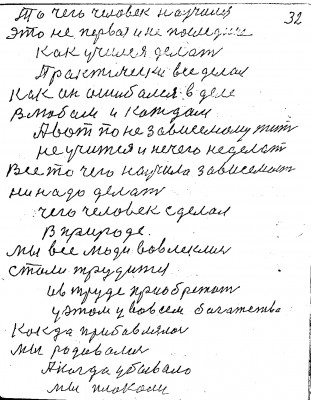 32
То чего человек научился
Это не первая и не последние
Как учился делат
Практически все делал
Как он ошибался в деле
В любом и каждам
А вот по не зависемому жит
не учится и нечего неделат
Все то чего научила зависемаст
ни надо делат
чего человек сделал
В природе.
мы все люди вовлеклис
стали трудится
ив труде приобретат
у этом у вовсем багатства
Кокда прибавлялос
мы радовалис
А когда убывало
мы плокали